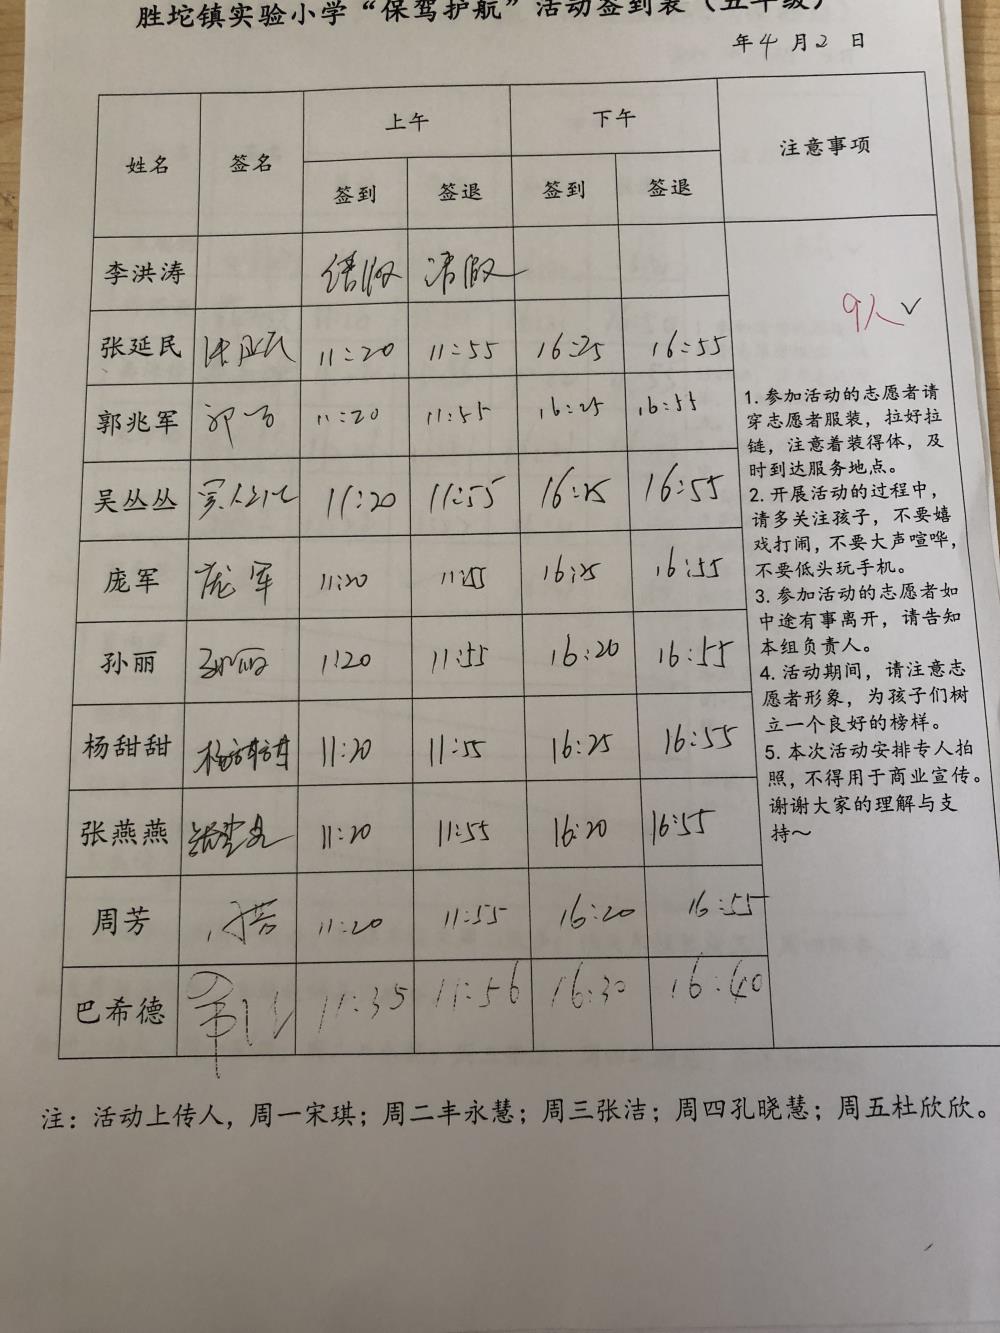 胜坨镇实验小学“保驾护航”活动签到表（五年级）
年4月2日
姓名 签名 上午 下午 注意事项
签到 签退 签到 签退
李洪涛 请假 请假
张延民 张延民 11:20 11:55 16:25 16:55
郭兆军 11:20 11:55 16:25 16:55
吴丛丛 吴丛丛 11:20 11:55 16:25 16:55
庞军 庞军 11:20 11:55 16:25 16:55
孙丽 孙丽 11:20 11:55 16:20 16:55
杨甜甜 杨甜甜 11:20 11:55 16:25 16:55
张燕燕 张燕燕 11:20 11:55 16:20 16:55
周芳 11:20 11:55 16:20 16:55
巴希德 11:35 11:56 16:30 16:40
9人✓
1. 参加活动的志愿者请
穿志愿者服装，拉好拉
链，注意着装得体，及
时到达服务地点。
2. 开展活动的过程中，
请多关注孩子，不要嬉
戏打闹，不要大声喧哗，
不要低头玩手机。
3. 参加活动的志愿者如
中途有事离开，请告知
本组负责人。
4. 活动期间，请注意志
愿者形象，为孩子们树
立一个良好的榜样。
5. 本次活动安排专人拍
照，不得用于商业宣传。
谢谢大家的理解与支
持～
注：活动上传人，周一宋琪；周二丰永慧；周三张洁；周四孔晓慧；周五杜欣欣。